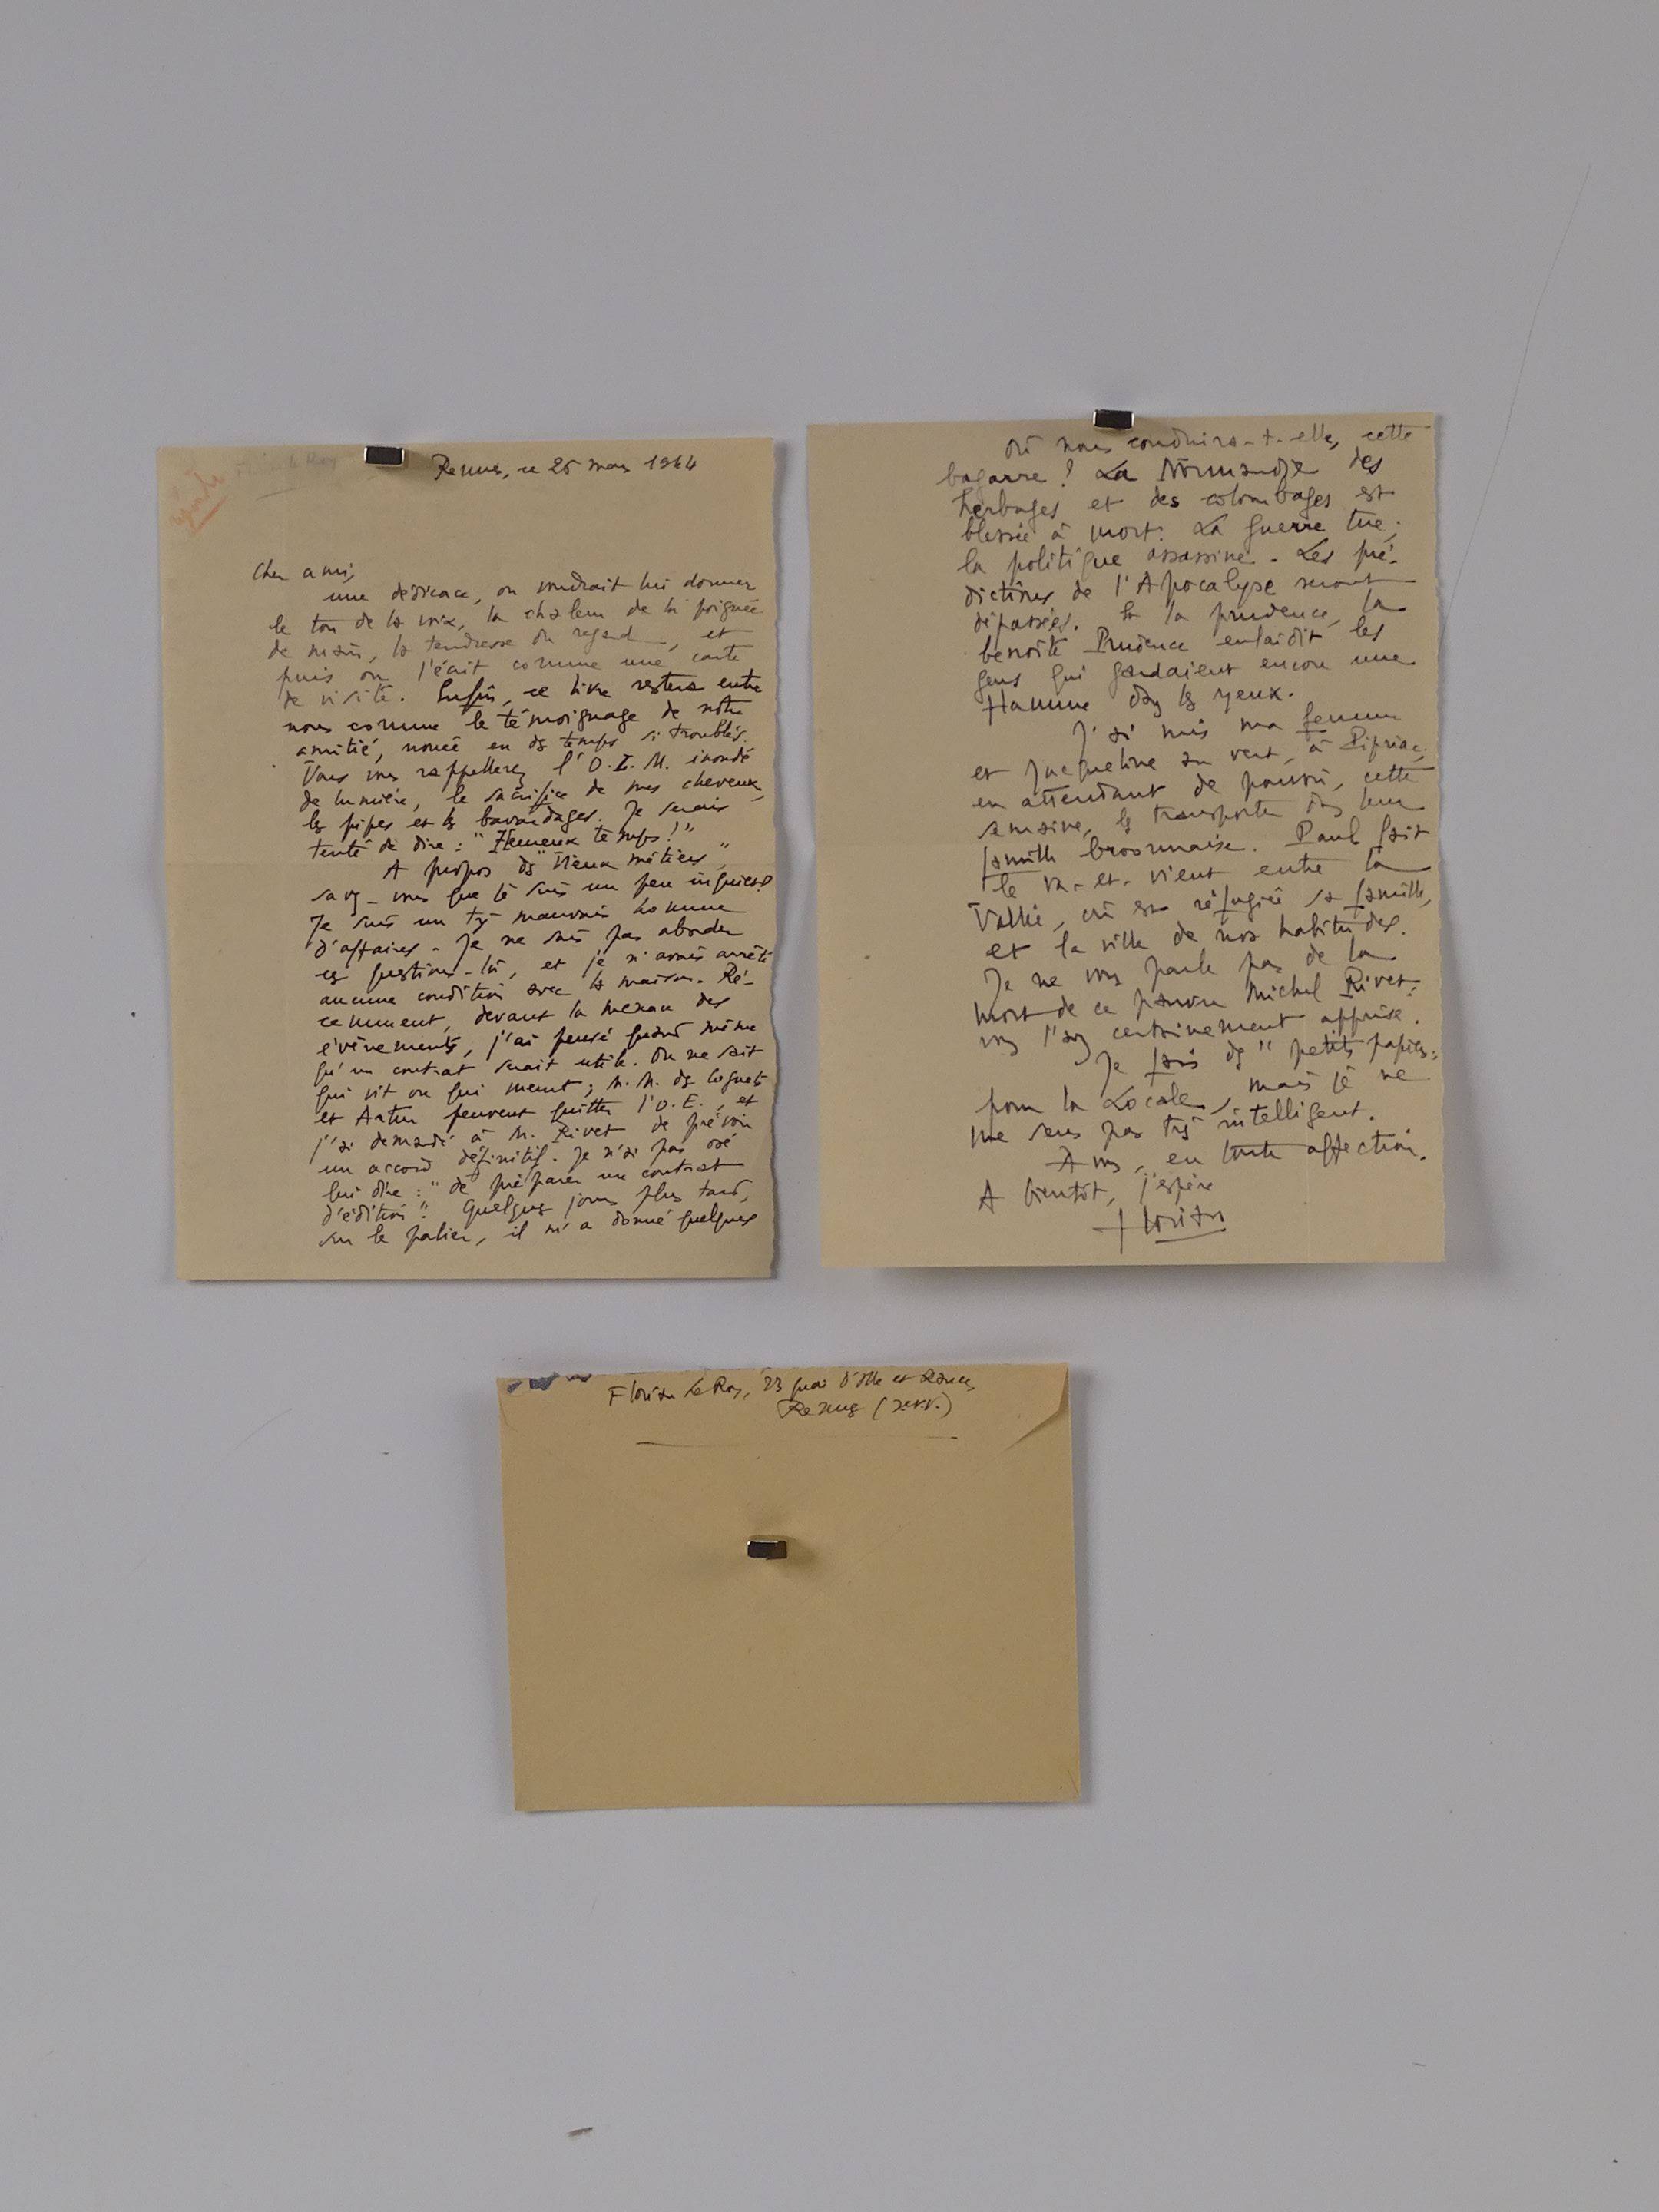 répondu
Florian le Roy
Rennes, ce 25 mars 1944
Cher ami,
une dédicace, on voudrait lui donner
le ton de la voix, la chaleur de la poignée
de main, la tendresse du regard, et
puis on l'écrit comme une carte
de visite. Enfin, ce livre restera entre
nous comme le témoignage de notre
amitié, nouée en ds temps si troublés.
Vous vous rappellerez l'O.I.M. inondé
de lumière, le sacrifice de mes cheveux,
ls pipes et ls bavardages. Je serais
tenté de dire : "Heureux temps !"
A propos ds "Vieux métiers",
savez-vous que je suis un peu inquiet ?
Je suis un très mauvais homme
d'affaires. Je ne sais pas aborder
ces questions-là, et je n'avais arrêté
aucune condition avec la maison. Ré-
cemment, devant la menace des
évènements, j'ai pensé quand même
qu'un contrat serait utile. On ne sait
qui vit ou qui meurt ; M.M. ds Cognets
et Artur peuvent quitter l'O.E., et
j'ai demandé à M. Rivet de prévoir
un accord définitif. Je n'ai pas osé
lui dire : "de préparer un contrat
d'édition". Quelques jours plus tard,
sur le palier, il m'a donné quelques
Où nous conduira-t-elle, cette
bagarre ! La Normandie des
herbages et des colombages est
blessée à mort. La guerre tue,
la politique assassine. Les pré-
dictions de l'Apocalypse seront
dépassées. Et la prudence, la
benoîte Prudence enlaidit les
gens qui gardaient encore une
flamme ds ls yeux.
J'ai mis ma femme
et Jacqueline au vert, à Pipriac,
en attendant de pouvoir, cette
semaine, ls transporter ds leur
famille broonnaise. Paul fait
le va-et-vient entre la
Vallée, où est réfugiée sa famille,
et la ville de nos habitudes.
Je ne vous parle pas de la
mort de ce pauvre Michel Rivet :
vous l'avez certainement apprise.
Je fais ds "petits papiers"
pour la Locale, mais je ne
me sens pas très intelligent.
A vous, en toute affection.
A bientôt, j'espère
Florian
Florian Le Roy, 23 quai d'Ille et Rance,
Rennes (I.et.V.)